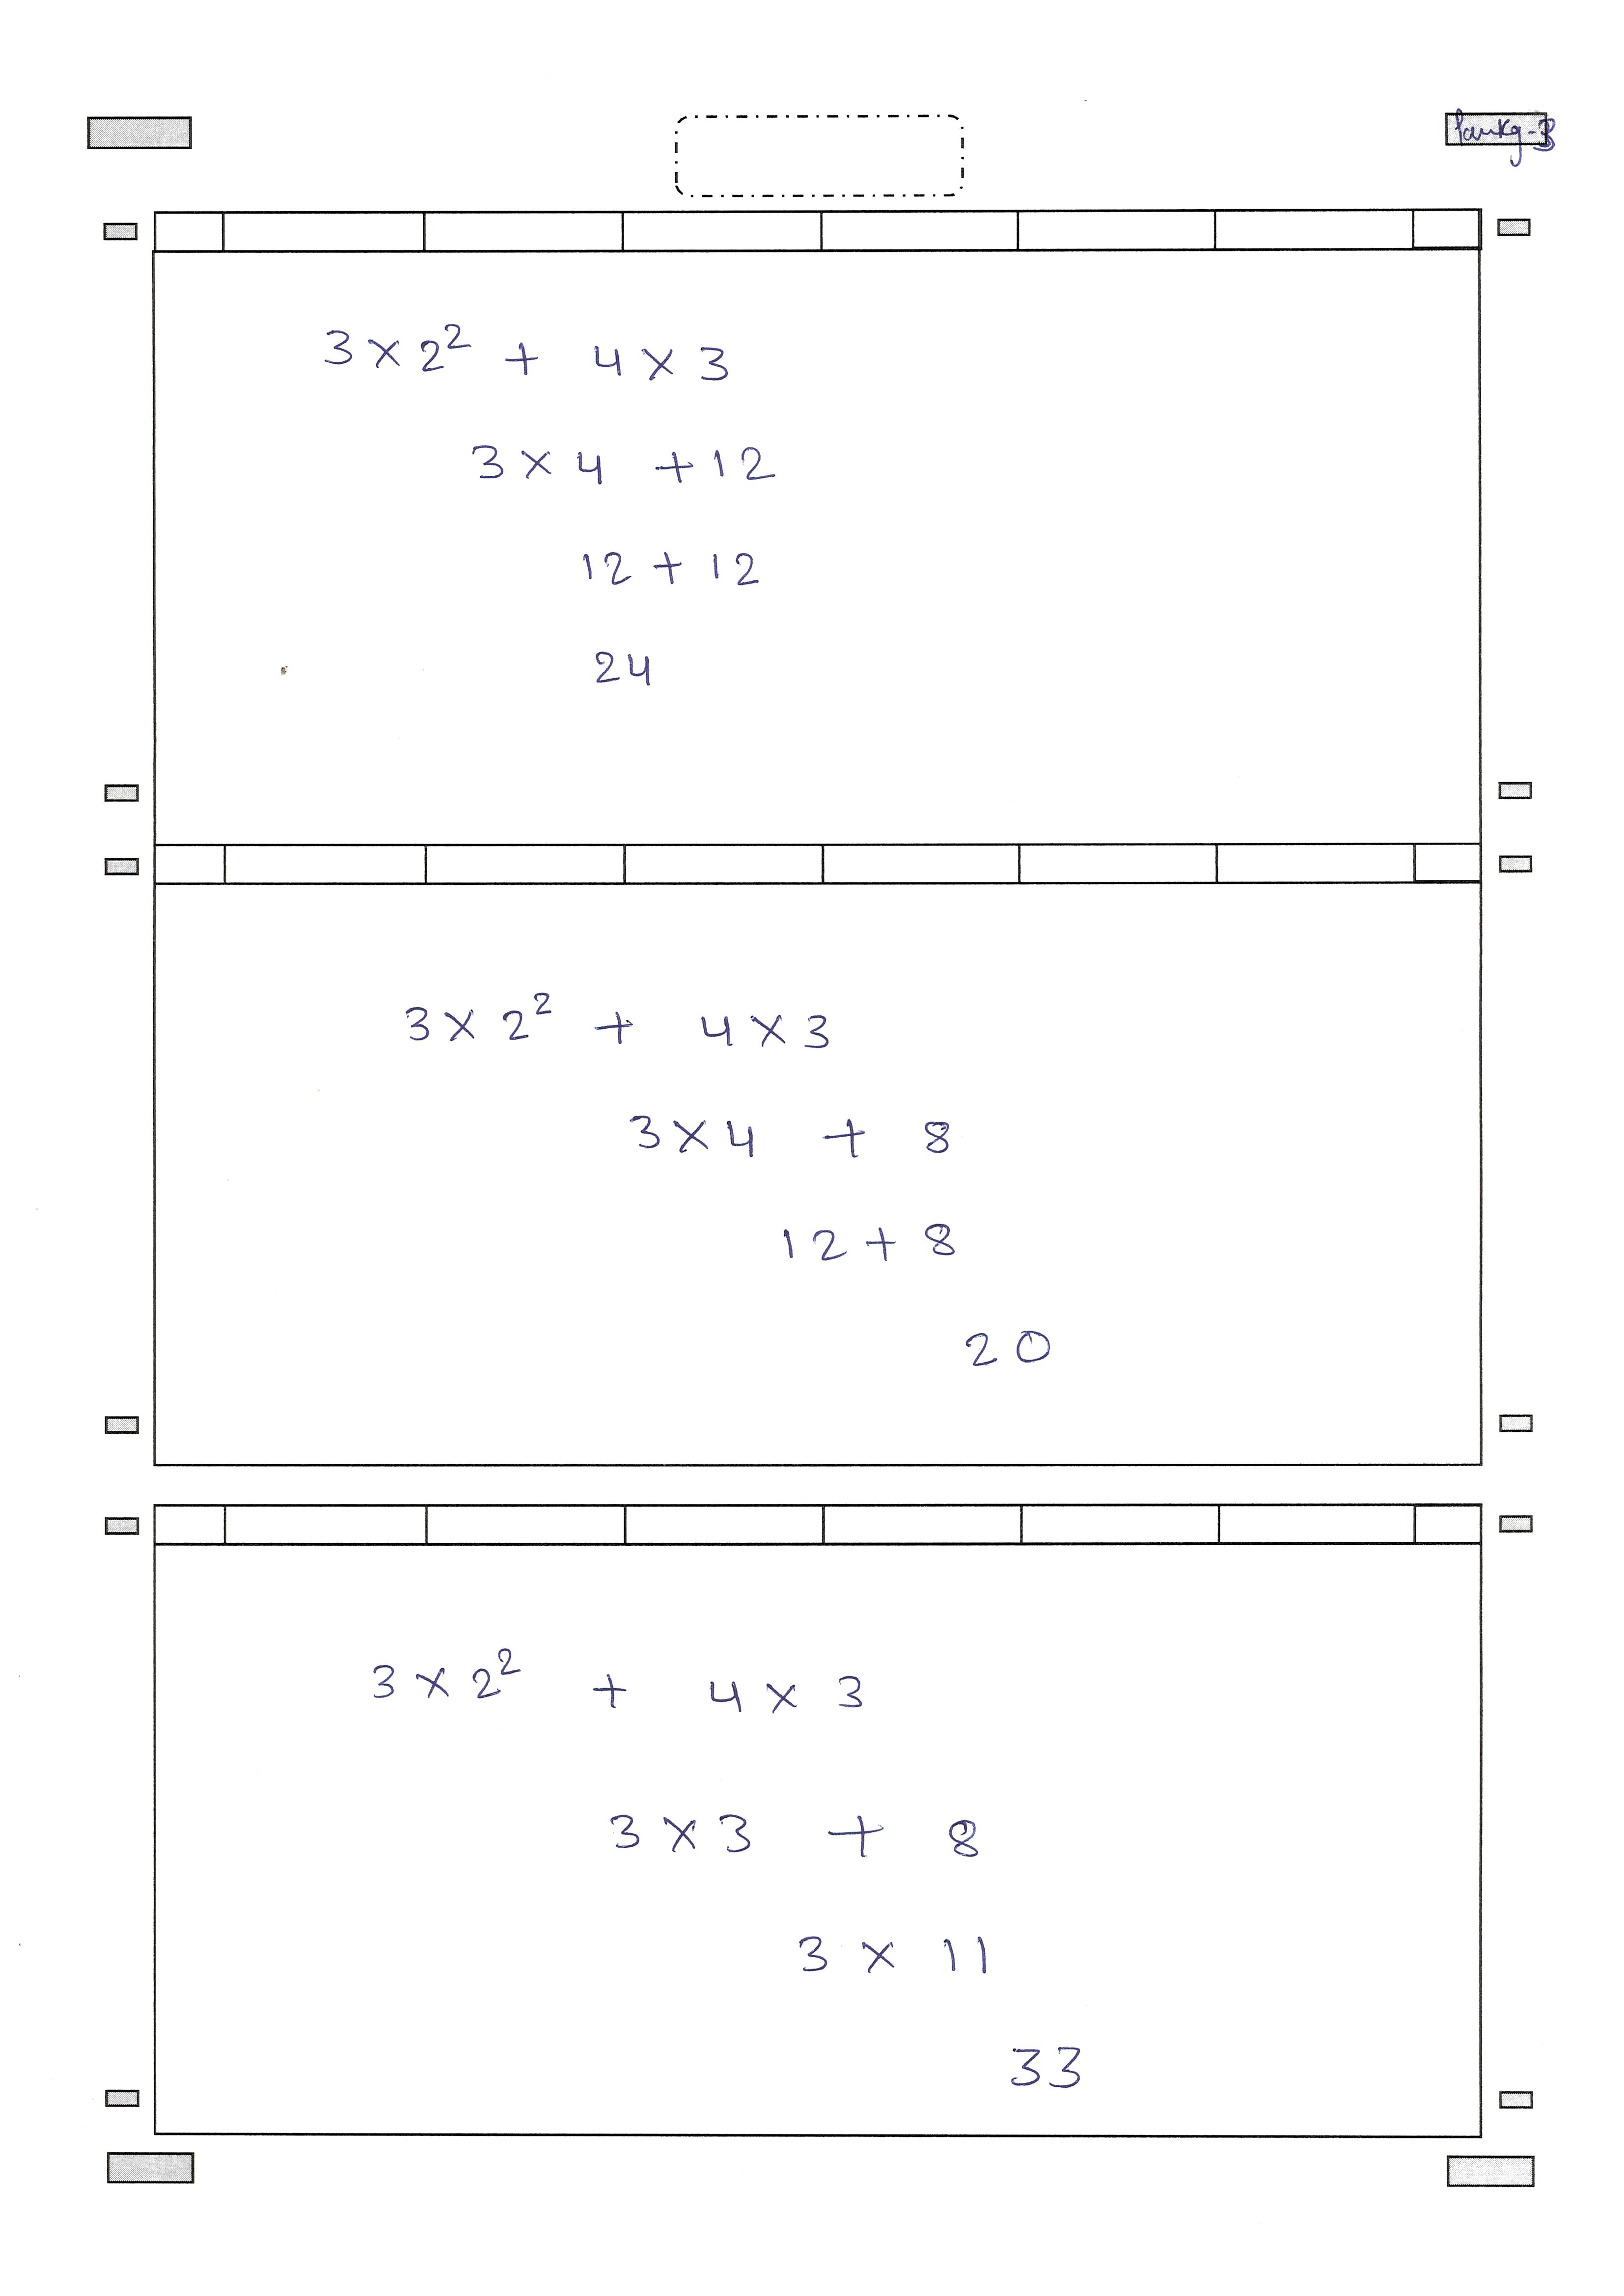 3 × 2² + 4 × 3
3 × 4 + 12
12 + 12
24
3 × 2² + 4 × 3
3 × 4 + 8
12 + 8
20
3 × 2² + 4 × 3
3 × 3 + 8
3 × 11
33